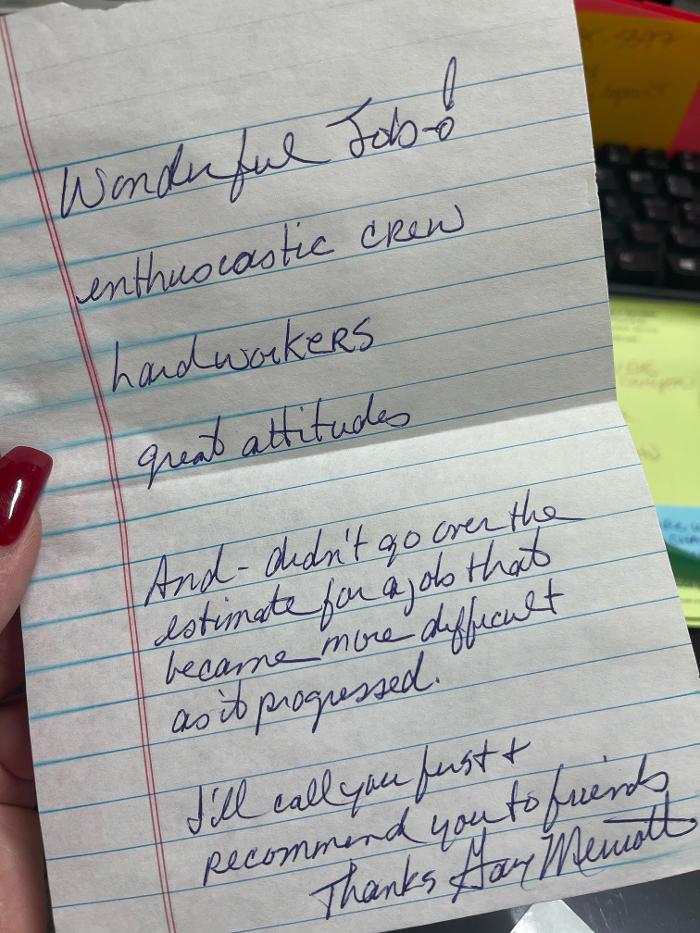 Wonderful Job!
enthusiastic crew
hardworkers
great attitudes
And - didn't go over the
estimate for a job that
became more difficult
as it progressed.
I'll call you first +
recommend you to friends
Thanks